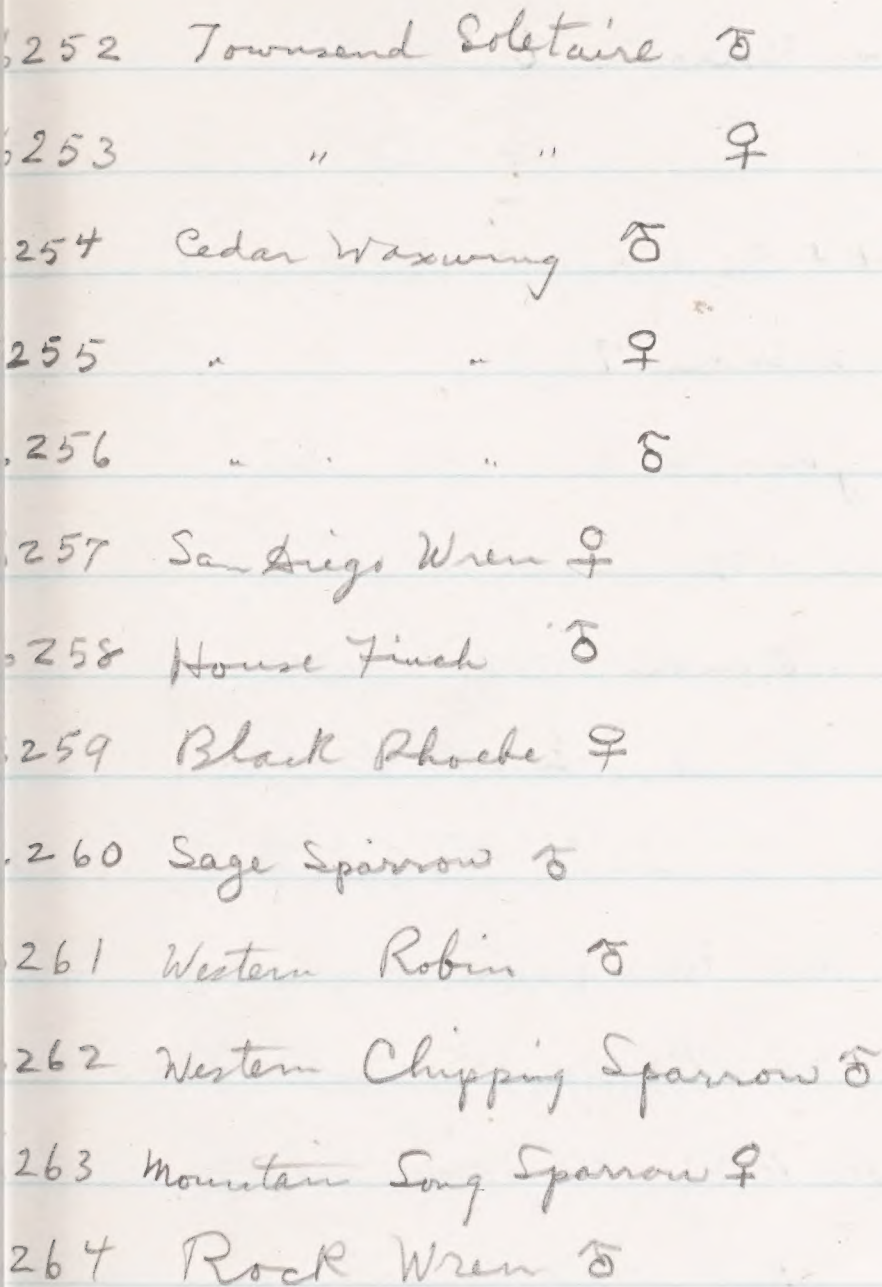 252 Townsend Soletaire ♂
253 " " ♀
254 Cedar Waxwing ♂
255 " " ♀
256 " " ♂
257 San Diego Wren ♀
258 House Finch ♂
259 Black Phoebe ♀
260 Sage Sparrow ♂
261 Western Robin ♂
262 Western Chipping Sparrow ♂
263 Mountain Song Sparrow ♀
264 Rock Wren ♂